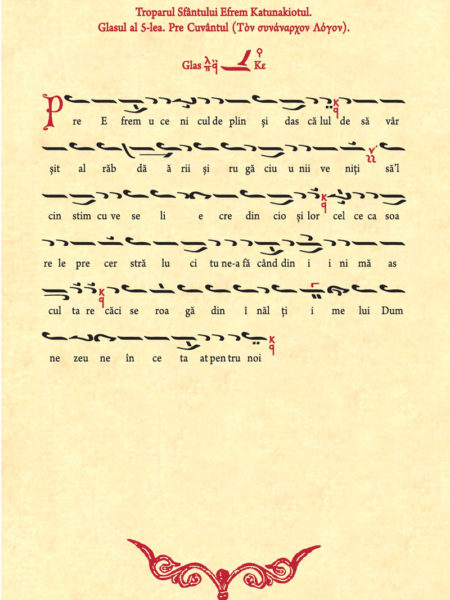 Troparul Sfântului Efrem Katunakiotul.
Glasul al 5-lea. Pre Cuvântul (Τὸν συνάναρχον Λόγον).
Glas λ π q̈ Κε
Pre E frem u ce ni cul de plin și das că lul de să vâr
șit al răb dă ă rii și ru gă ciu u nii ve niți să'l
cin stim cu ve se li e cre din cio și lor cel ce ca soa
re le pre cer stră lu ci tu ne-a fă când din i i ni mă as
cul ta re căci se roa gă din î năl ți i me lui Dum
ne zeu ne în ce ta at pen tru noi